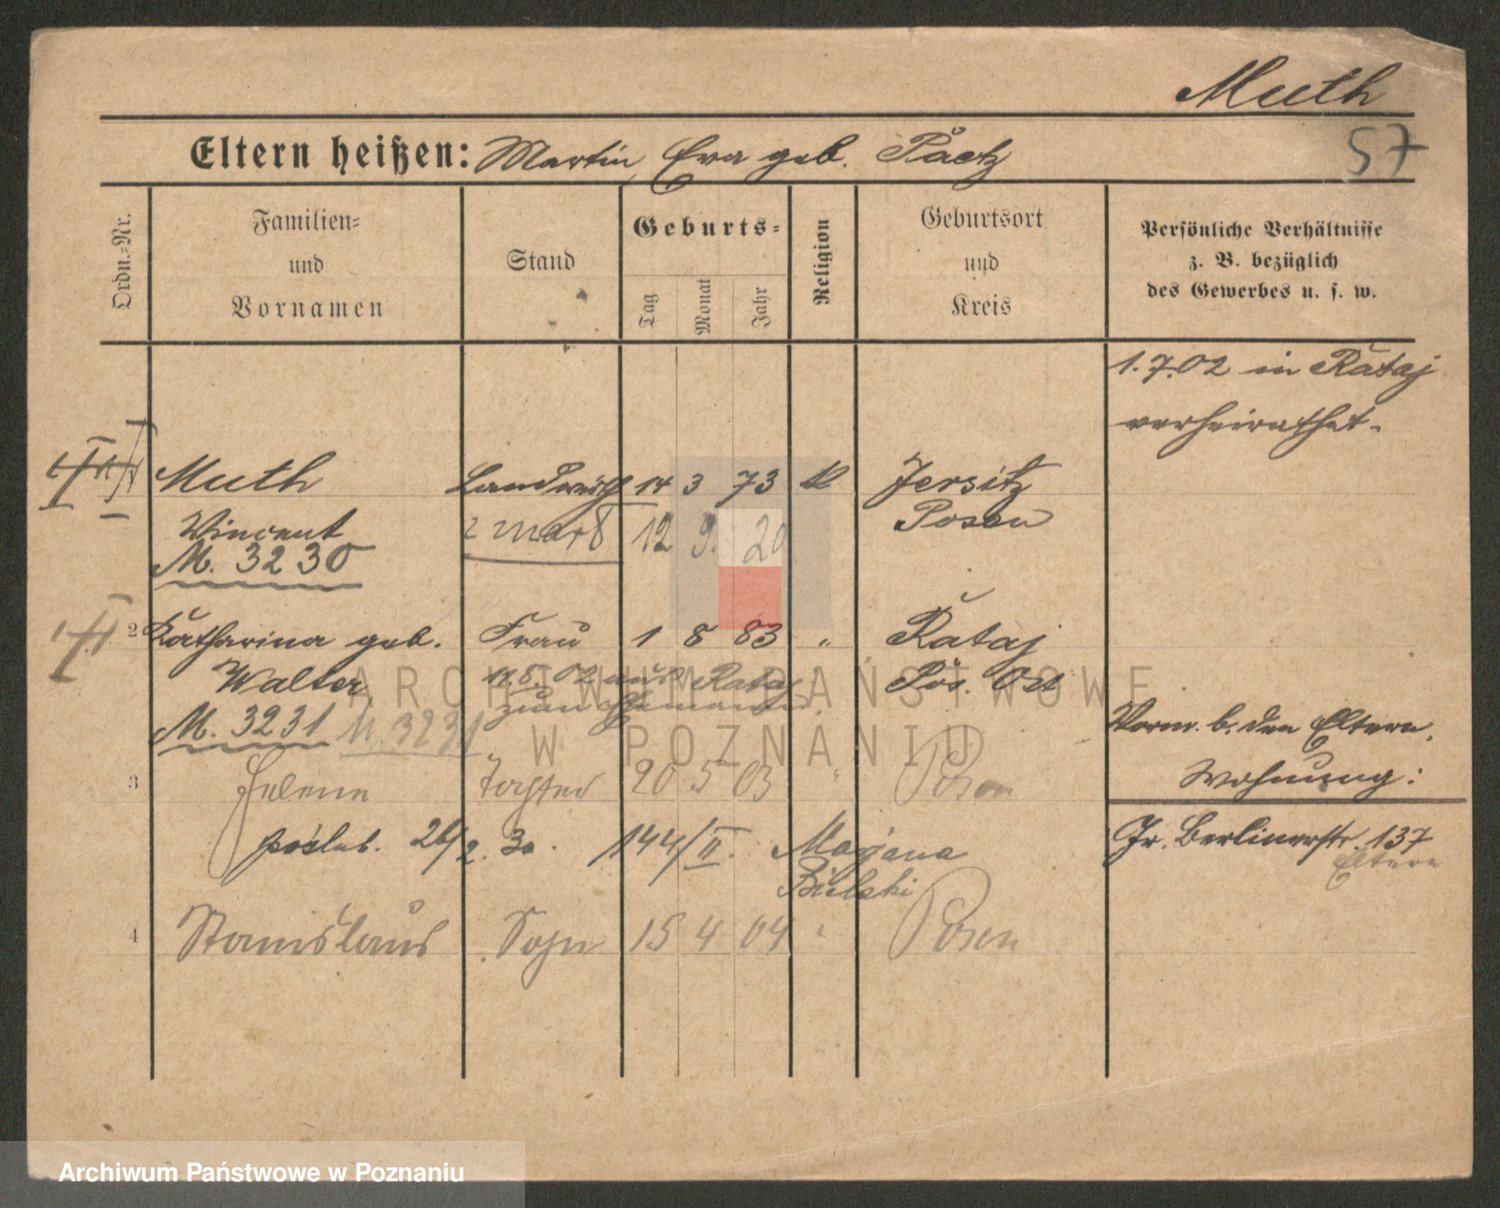 Muth
57
Eltern heißen: Martin, Eva geb. Paetz
Ordn.-Nr.
Familien-
und
Vornamen
Stand
Geburts-
Tag
Monat
Jahr
Religion
Geburtsort
und
Kreis
Persönliche Verhältnisse
z. B. bezüglich
des Gewerbes u. s. w.
1.7.02 in Rataj
verheirathet.
Muth Landwirth 14 3 73 k Jersitz
Vincent zmarł 12 9. 20 Posen
M. 3230
2 Katharina geb. Frau 1 8 83 " Rataj
Walter 11.8.02 aus Rataj Pos. Ost
zum Ehemann.
M. 3231 M. 3231
Vorm. b. den Eltern.
Wohnung:
3 Helene Tochter 20 5 03 " Posen
poślub. 26/2. 30. 144/II. Marjana
Bielski
Jr. Berlinerstr. 137
Eltern
4 Stanislaus Sohn 15 4 04 " Posen
ARCHIWUM PAŃSTWOWE
W POZNANIU
Archiwum Państwowe w Poznaniu